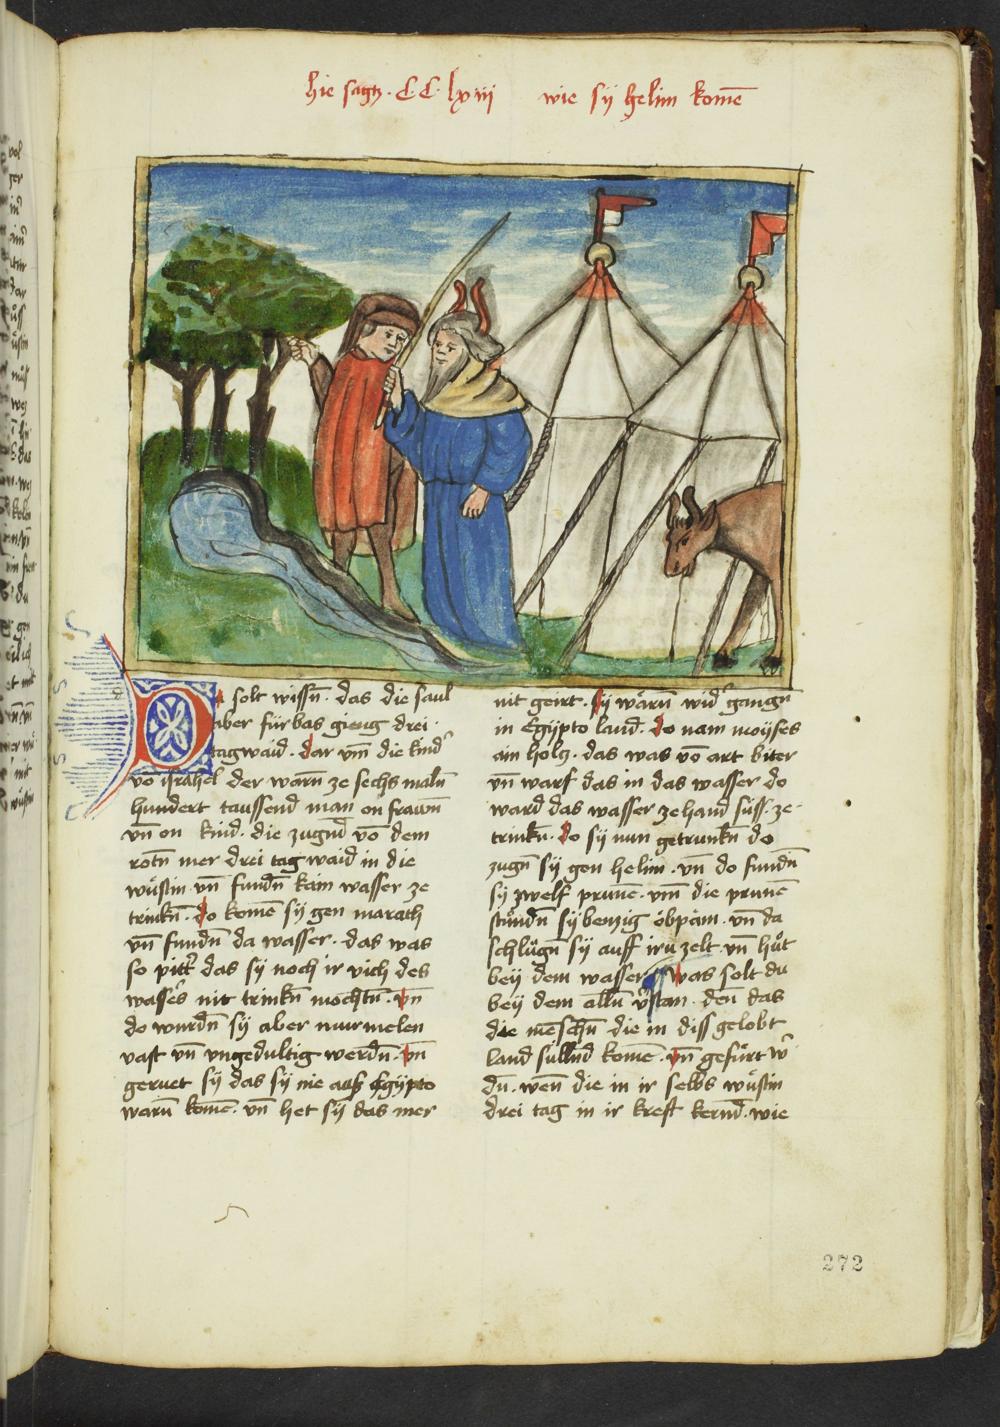 hie sagt · C C · lxiii wie sÿ helim komē
Du solt wissn̄ · das die saul
aber fürbas gieng drei ·
tagwaid · dar vm̄ die kind
vō israhel der warn̄ ze sechs maln̄
hundert taussend man on frawn̄
vn̄ on kind · die zugnd vō dem
rotn̄ mer drei tag waid in die
wüstin vn̄ fundn̄ kain wasser ze
trinkn̄ · do komē sÿ gen marath
vn̄ fundn̄ da wasser · das was
so pittr das sÿ noch ir vich des
wassers nit trinkn̄ mochtn̄ · vn̄
do wurdn̄ sÿ aber murmelen
vast vn̄ vngedultig werdn̄ · vn̄
geruet sÿ das sÿ nie auß Egÿpto
warn̄ komē · vn̄ het sÿ das mer
nit geirt · sÿ wärn̄ wid gangn̄
in Egÿpto land · do nam moÿses
ain holtz · das was vō art biter
vn̄ warf das in das wasser do
ward das wasser zehand süss · ze-
trinkn̄ · do sÿ nun getrunkn̄ do
zugn̄ sÿ gen helim · vn̄ do fundn̄
sÿ zwelf prunē · vm̄ die prunē
stündn̄ sÿbenzig obpäm · vn̄ da
schlügn̄ sÿ auff iru zelt · vn̄ hüt
beÿ dem wasser was solt du
beÿ dem alln̄ vstan · den̄ das
die mēschn̄ die in diss gelobt
land sullnd komē · vn̄ gefürt w
dn̄ · wen̄ die in ir selbs wüstin
drei tag in ir kreft kernd · wie
272